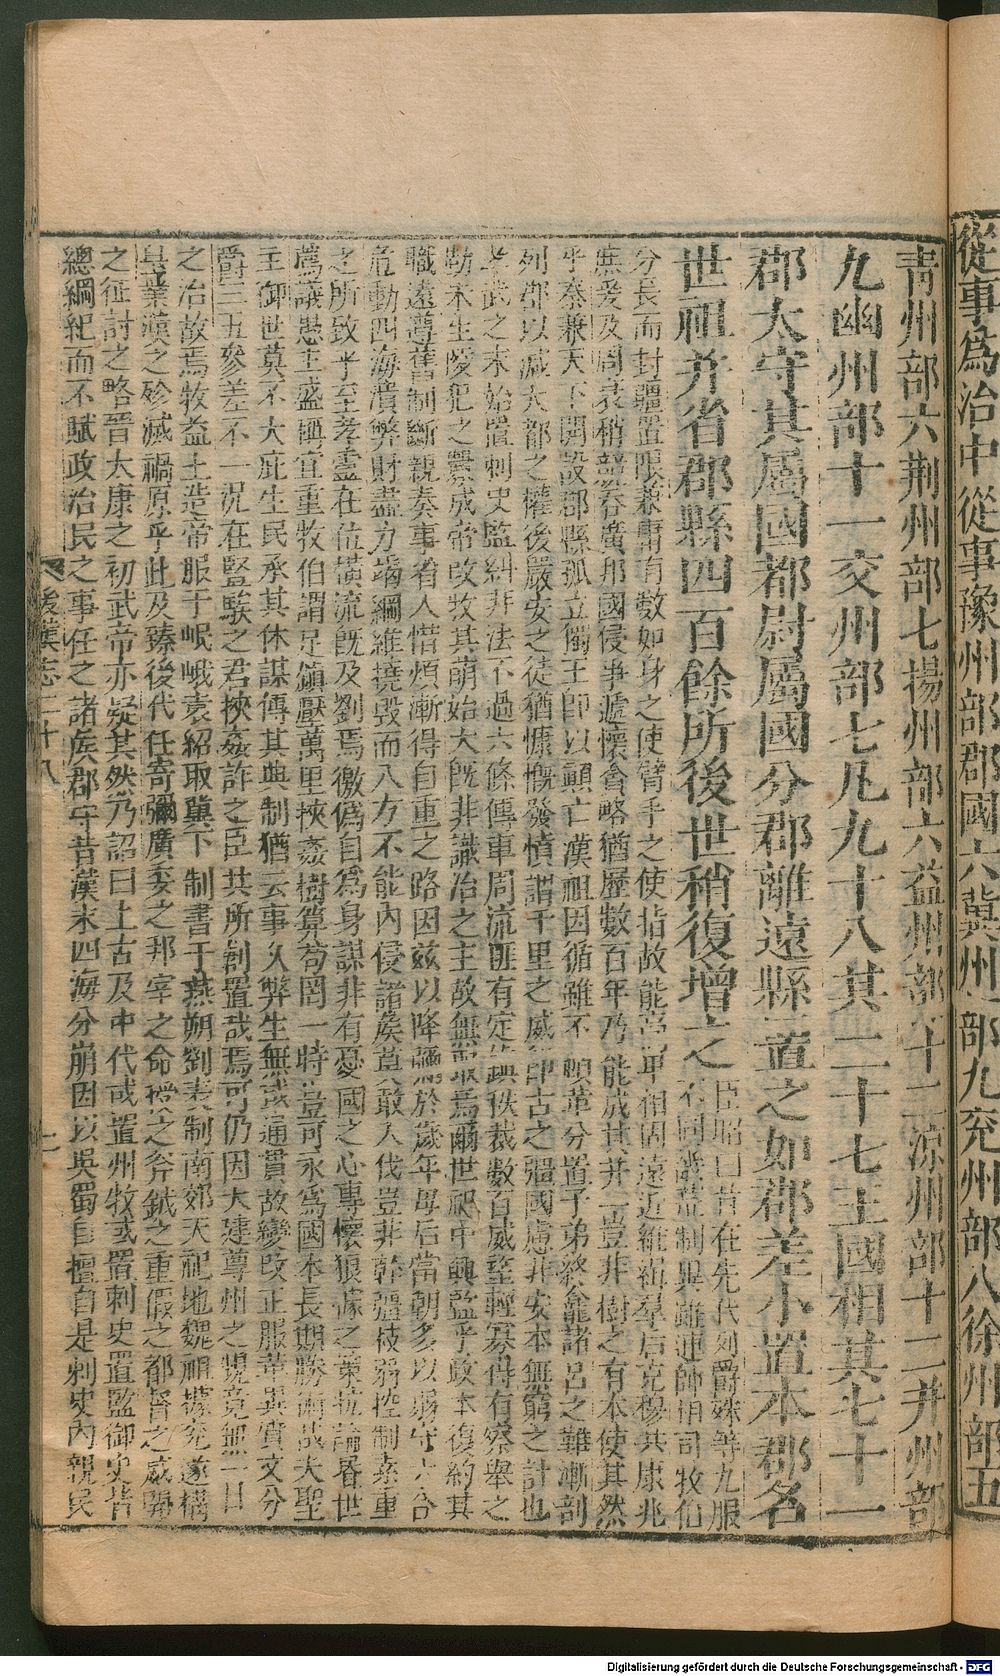 從事爲治中從事豫州部郡國六冀州部九兗州部八徐州部五
靑州部六荆州部七揚州部六益州部十二凉州部十二并州部
九幽州部十一交州部七凡九十八其二十七王國相其七十一
郡太守其屬國都尉屬國分郡離遠縣置之如郡差小置本郡名
世祖并省郡縣四百餘所後世稍復增之
臣昭曰昔在先代列爵殊等九服
不同畿荒制異雖連帥相司牧伯
分長而封疆置限兼庸有數如身之使臂手之使指故能高卑相固遠近維緝羣后克穆共康兆
庶爰及周衰稍競吞廣邦國侵爭遞懷貪略猶歷數百年乃能成其并一豈非樹之有本使其然
乎秦兼天下開設郡縣孤立獨王卽以顚亡漢祖因循雖不頓革分置子弟終龕諸呂之難漸剖
列郡以減大都之權後嚴安之徒猶慷慨發憤謂千里之威卽古之彊國慮非安本無窮之計也
孝武之末始置刺史監糾非法不過六條傳車周流匪有定鎭秩裁數百威望輕寡得有察舉之
勤未生陵犯之釁成帝改牧其萌始大旣非識治之主故無取焉爾世祖中興監乎政本復約其
職還遵舊制斷親奏事省入惜煩漸得自重之路因茲以降彌於歲年母后當朝多以弱守六合
危動四海潰弊財盡力竭綱維撓毁而八方不能內侵諸侯莫敢入伐豈非幹彊枝弱控制素重
之所致乎至孝靈在位橫流旣及劉焉徼僞自爲身謀非有憂國之心專懷狼據之策抗論昏世
薦議愚主盛稱宜重牧伯謂足鎭壓萬里挾姦樹算苟罔一時豈可永爲國本長期勝術哉夫聖
主御世莫不大庇生民承其休謀傳其典制猶云事久弊生無或通貫故變改正服革異質文分
爵三五參差不一況在竪騃之君挾姦詐之臣共所創置哉焉可仍因大建尊州之規竟無一日
之治故焉牧益土造帝服于岷峨袁紹取冀下制書于燕朔劉表制南郊天祀地魏祖據兗遂構
皇業漢之殄滅禍原乎此及臻後代任寄彌廣委之邦宰之命授之斧鉞之重假之都督之威開
之征討之略晉太康之初武帝亦疑其然乃詔曰上古及中代或置州牧或置刺史置監御史皆
總綱紀而不賦政治民之事任之諸侯郡守昔漢末四海分崩因以吳蜀自擅自是刺史內親民
後漢志二十八
Digitalisierung gefördert durch die Deutsche Forschungsgemeinschaft - DFG